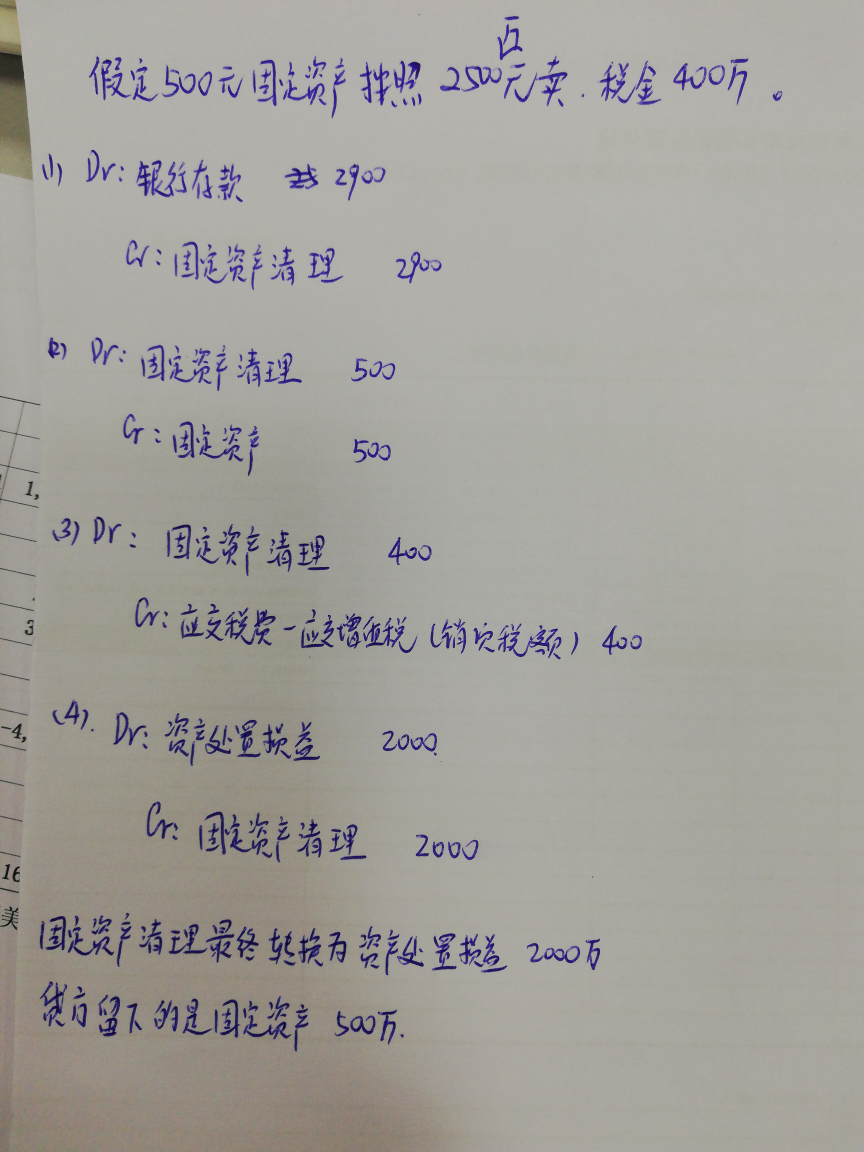 万
假定500元固定资产按照 2500元卖. 税金400万。
(1) Dr: 银行存款 2900
Cr: 固定资产清理 2900
(2) Dr: 固定资产清理 500
Cr: 固定资产 500
(3) Dr: 固定资产清理 400
Cr: 应交税费-应交增值税(销项税额) 400
(4). Dr: 资产处置损益 2000
Cr: 固定资产清理 2000
固定资产清理最终转换为资产处置损益 2000万
贷方留下的是固定资产 500万.
1,
3
-4,
16
美